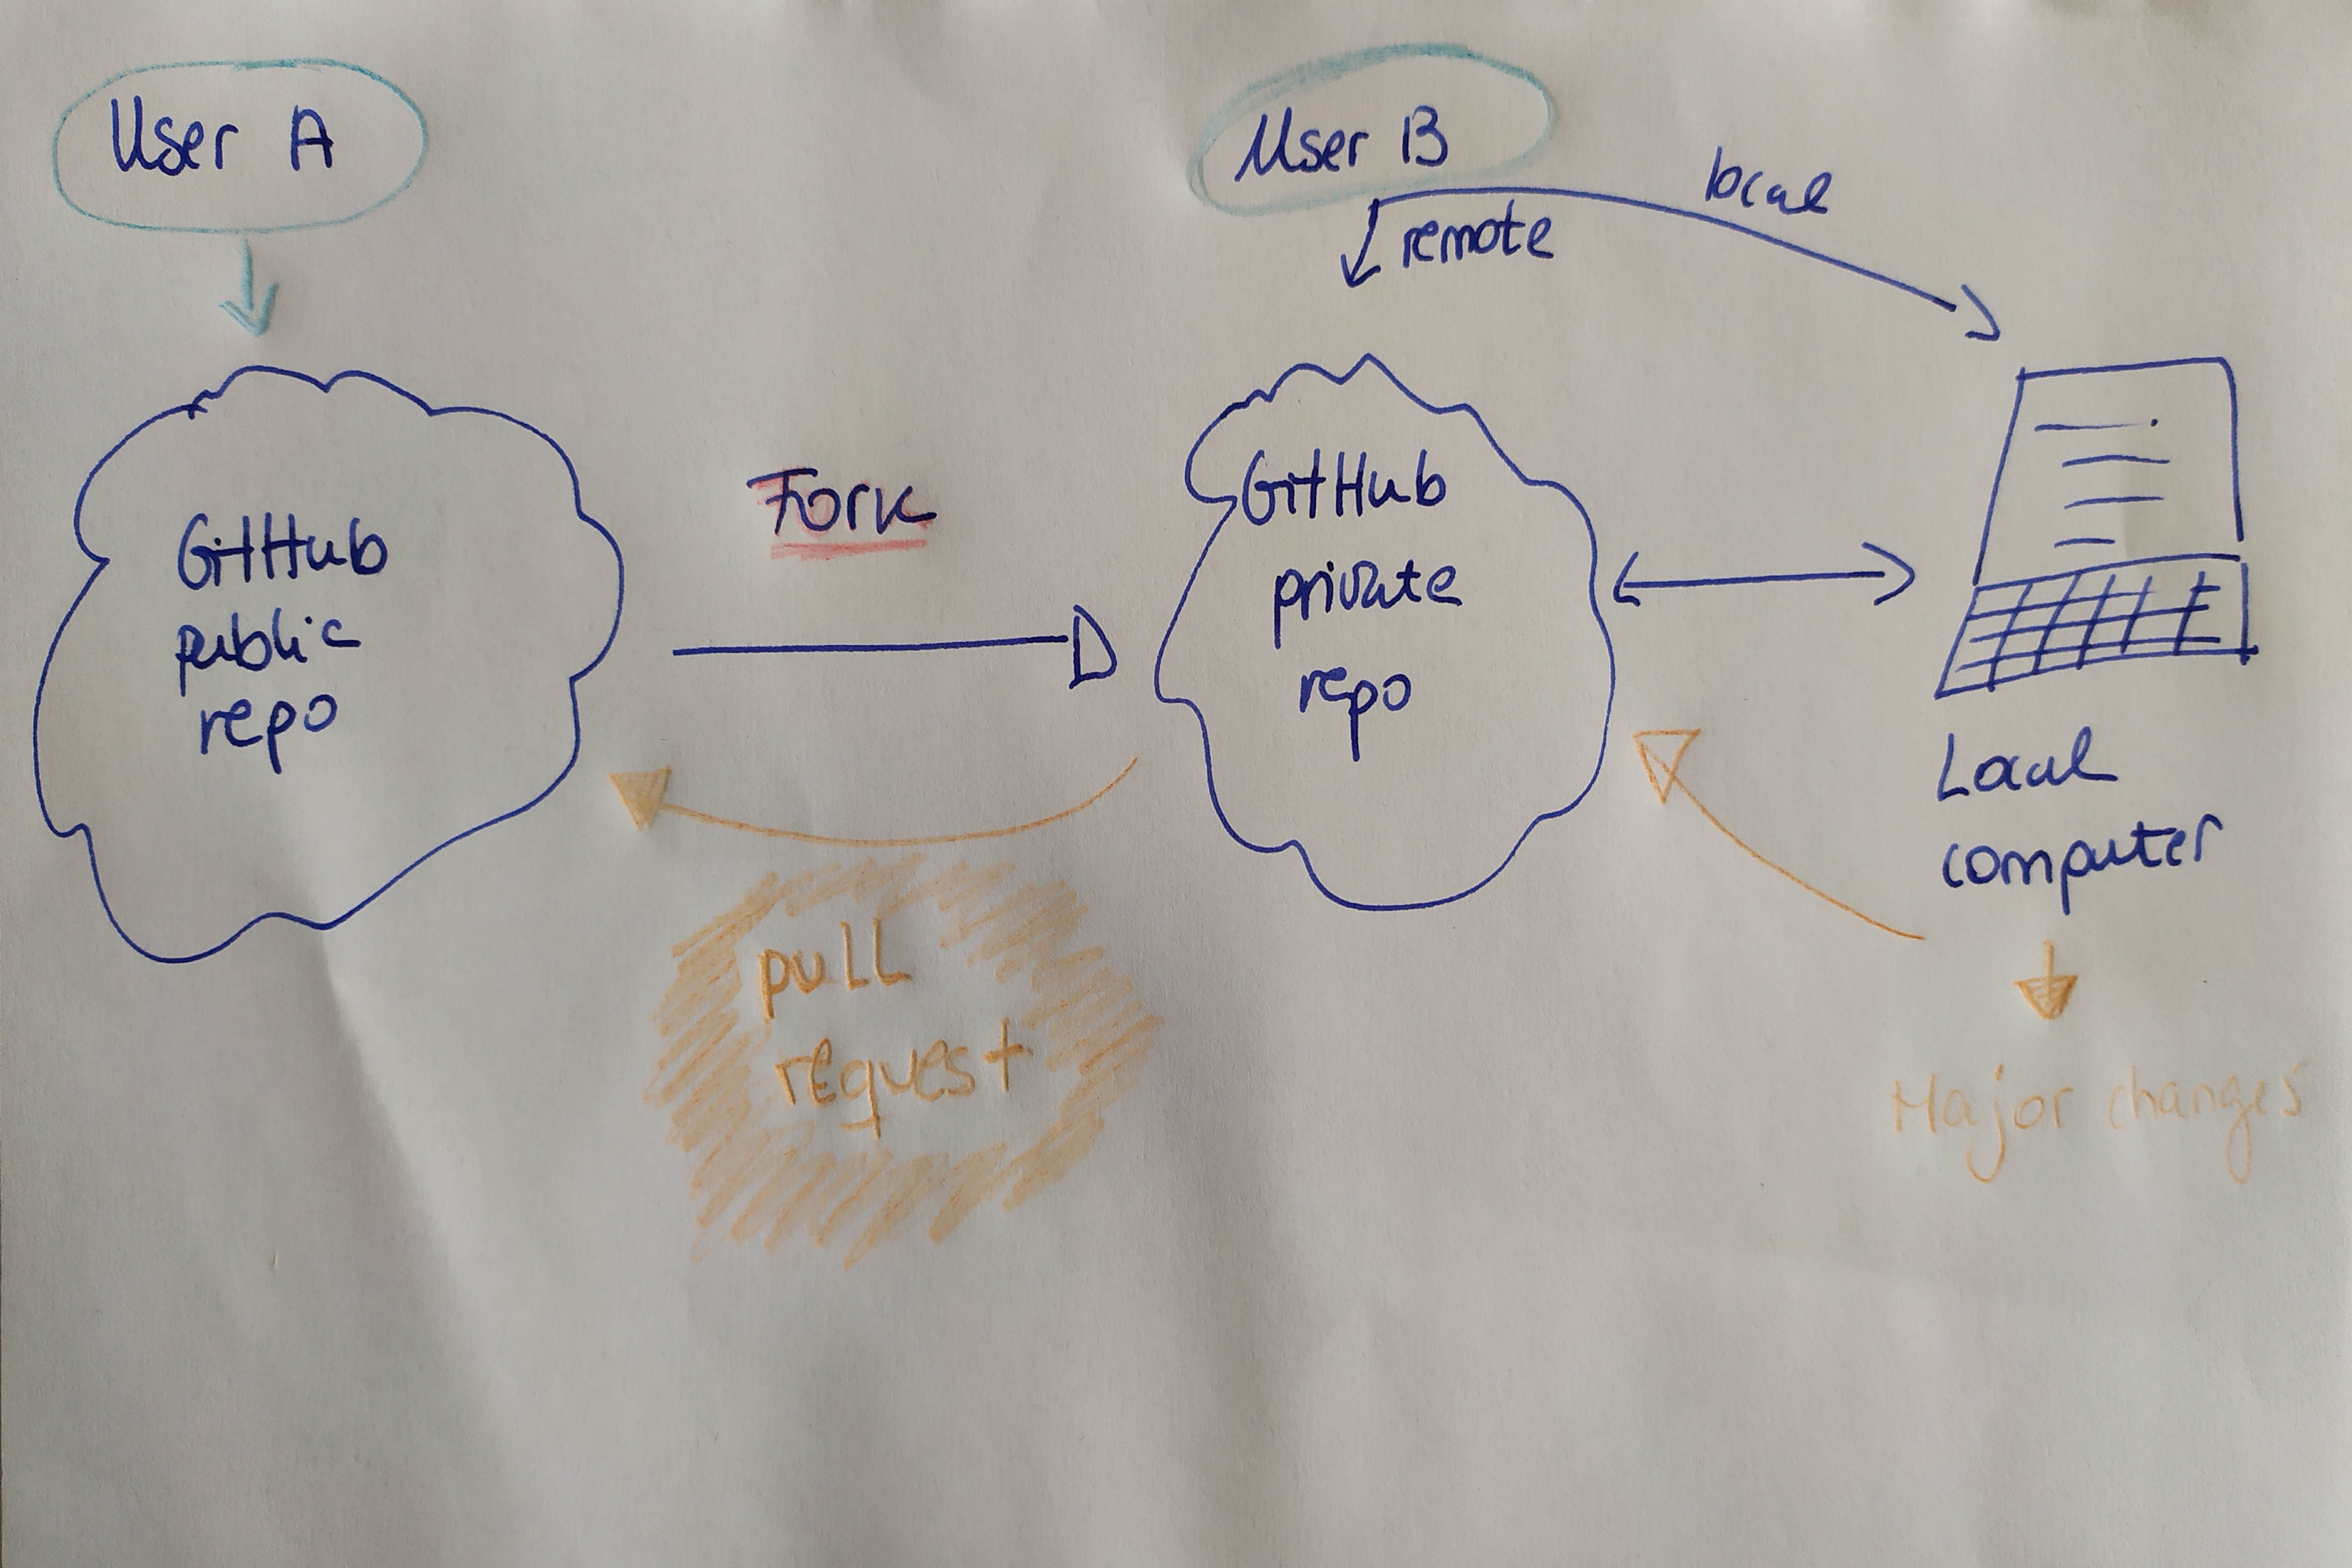 User A
User B
local
remote
GitHub
public
repo
Fork
GitHub
private
repo
Local
computer
pull
request
Major changes